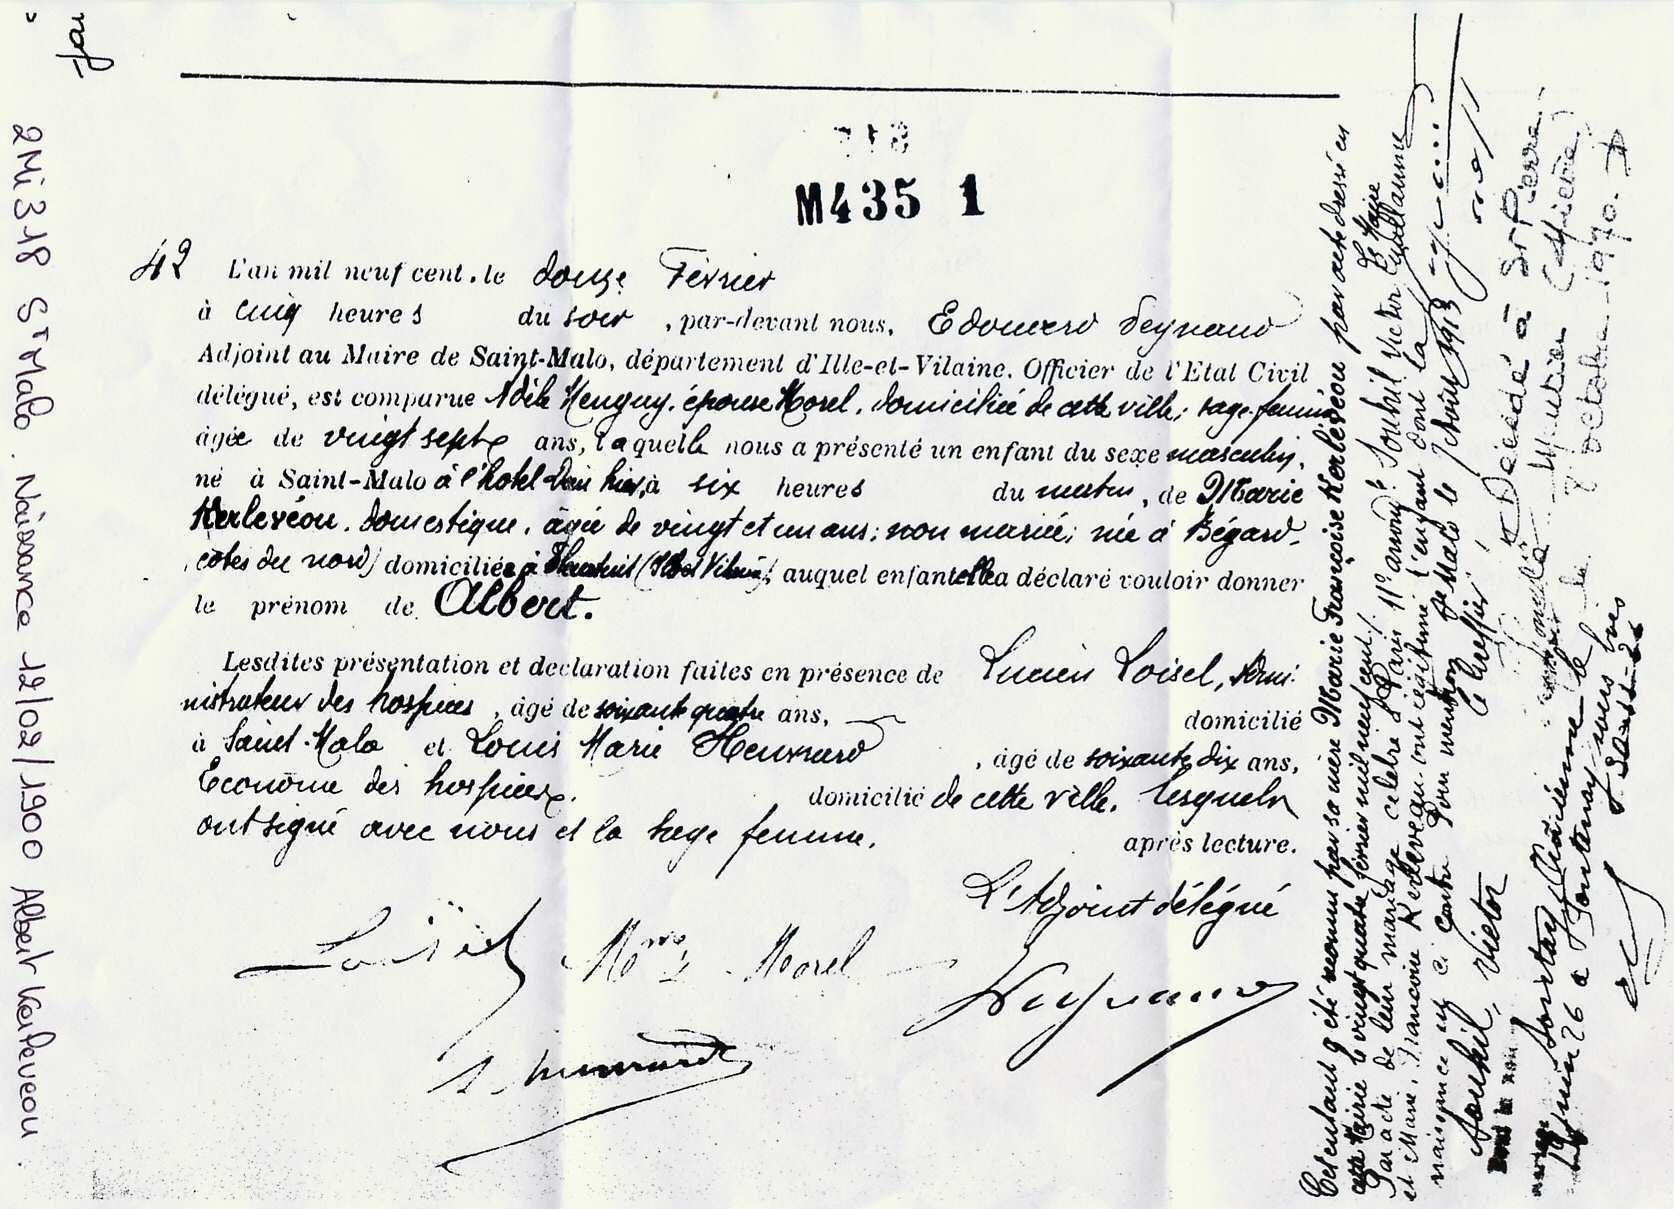 2Mi 318 St Malo. Naissance 12/02/1900 Albert Kerleveou
M435 1
42 L'an mil neuf cent, le douze Février
à cinq heures du soir, par-devant nous, Edouard
Adjoint au Maire de Saint-Malo, département d'Ille-et-Vilaine, Officier de l'Etat Civil
délégué, est comparue Adèle Menguy, épouse Morel, domiciliée de cette ville; sage-femme
âgée de vingt sept ans, laquelle nous a présenté un enfant du sexe masculin,
né à Saint-Malo à l'hotel Dieu hier, à six heures du matin, de Marie
Kerlevéou, domestique, âgée de vingt et un ans; non mariée; née à Bégard,
(côtes du nord) domiciliée à (Ille et Vilaine) auquel enfant elle a déclaré vouloir donner
le prénom de Albert.
Lesdites présentation et déclaration faites en présence de Lucien Loisel, Admi-
nistrateur des hospices, âgé de soixante quatre ans, domicilié
à Saint-Malo et Louis Marie, âgé de soixante dix ans,
Econome des hospices, domicilié de cette ville, lesquels
ont signé avec nous et la sage femme, après lecture.
L'Adjoint délégué
Loisel Morel
Cet enfant a été reconnu par sa mère Marie Françoise Kerlévéou par acte dressé en
cette Mairie le vingt quatre février mil neuf cent. Le Maire
Par acte de leur mariage célébré à Paris 11e arrondt Souhil Victor Guillaume
et Marie Françoise Kerleveou ont légitimé l'enfant dont la
naissance est ci-contre Pour mention St Malo le 1913
Le Greffier
Souhil, Victor
Décédé à St Pierre
le
7 octobre 1970.
26 à Fontenay sous bois